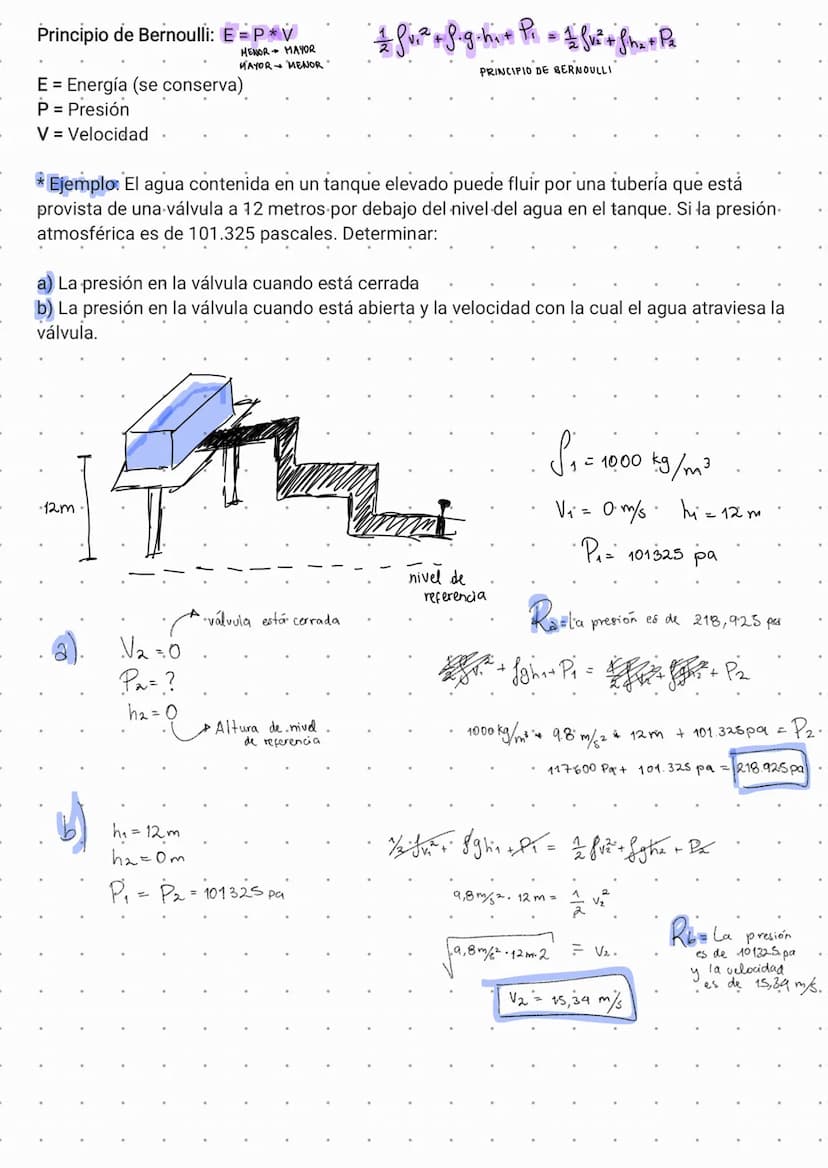 Principio de Bernoulli: E = P * V
MENOR → MAYOR
MAYOR → MENOR
½ ρv₁² + ρ·g·h₁ + P₁ = ½ ρv₂² + ρh₂ + P₂
PRINCIPIO DE BERNOULLI
E = Energía (se conserva)
P = Presión
V = Velocidad
* Ejemplo: El agua contenida en un tanque elevado puede fluir por una tubería que está
provista de una válvula a 12 metros por debajo del nivel del agua en el tanque. Si la presión
atmosférica es de 101.325 pascales. Determinar:
a) La presión en la válvula cuando está cerrada
b) La presión en la válvula cuando está abierta y la velocidad con la cual el agua atraviesa la
válvula.
12m
nivel de
referencia
ρ₁ = 1000 kg/m³
V₁ = 0 m/s h₁ = 12 m
P₁ = 101325 pa
Ra = La presión es de 218,925 pa
a)
válvula está cerrada
V₂ = 0
P₂ = ?
h₂ = 0
Altura de nivel
de referencia
½ρv₁² + ρgh₁ + P₁ = ½ρv₂² + ρgh₂ + P₂
1000 kg/m³ * 9.8 m/s² * 12m + 101.325pa = P₂
117600 Pa + 101.325 pa = 218.925 pa
b)
h₁ = 12m
h₂ = 0m
P₁ = P₂ = 101325 pa
½ρv₁² + ρgh₁ + P₁ = ½ ρv₂² + ρgh₂ + P₂
9,8 m/s² · 12m = ½ v₂²
√9,8 m/s² · 12m · 2 = V₂
V₂ = 15,34 m/s
Rb = La presión
es de 101325 pa
y la velocidad
es de 15,34 m/s.